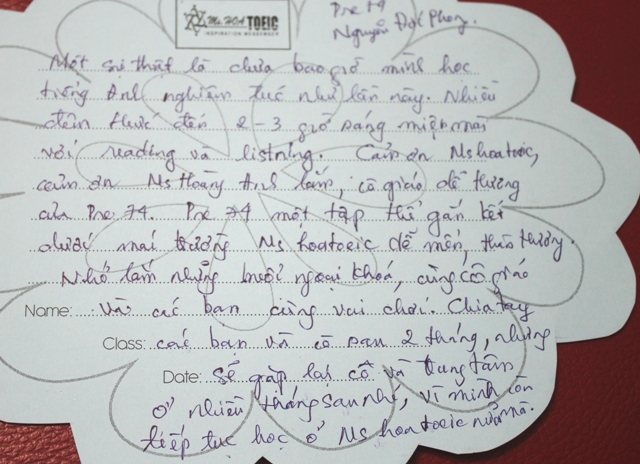 Ms HOA TOEIC
INSPIRATION MESSENGER
Pre 74
Nguyễn Đức Phong.
Một sự thật là chưa bao giờ mình học
tiếng Anh nghiêm túc như lần này. Nhiều
đêm thức đến 2-3 giờ sáng miệt mài
với reading và listning. Cảm ơn Mshoatoeic,
cảm ơn Ms Hoàng Anh lắm, cô giáo dễ thương
của Pre 74. Pre 74 một tập thể gắn kết
dưới mái trường Ms hoatoeic dễ mến, thân thương.
Nhớ lắm những buổi ngoại khoá, cùng cô giáo
Name: và các bạn cùng vui chơi. Chia tay
Class: các bạn và cô sau 2 tháng, nhưng
Date: sẽ gặp lại cô và trung tâm
ở nhiều tháng sau nhé, vì mình còn
tiếp tục học ở Ms hoatoeic nữa mà.